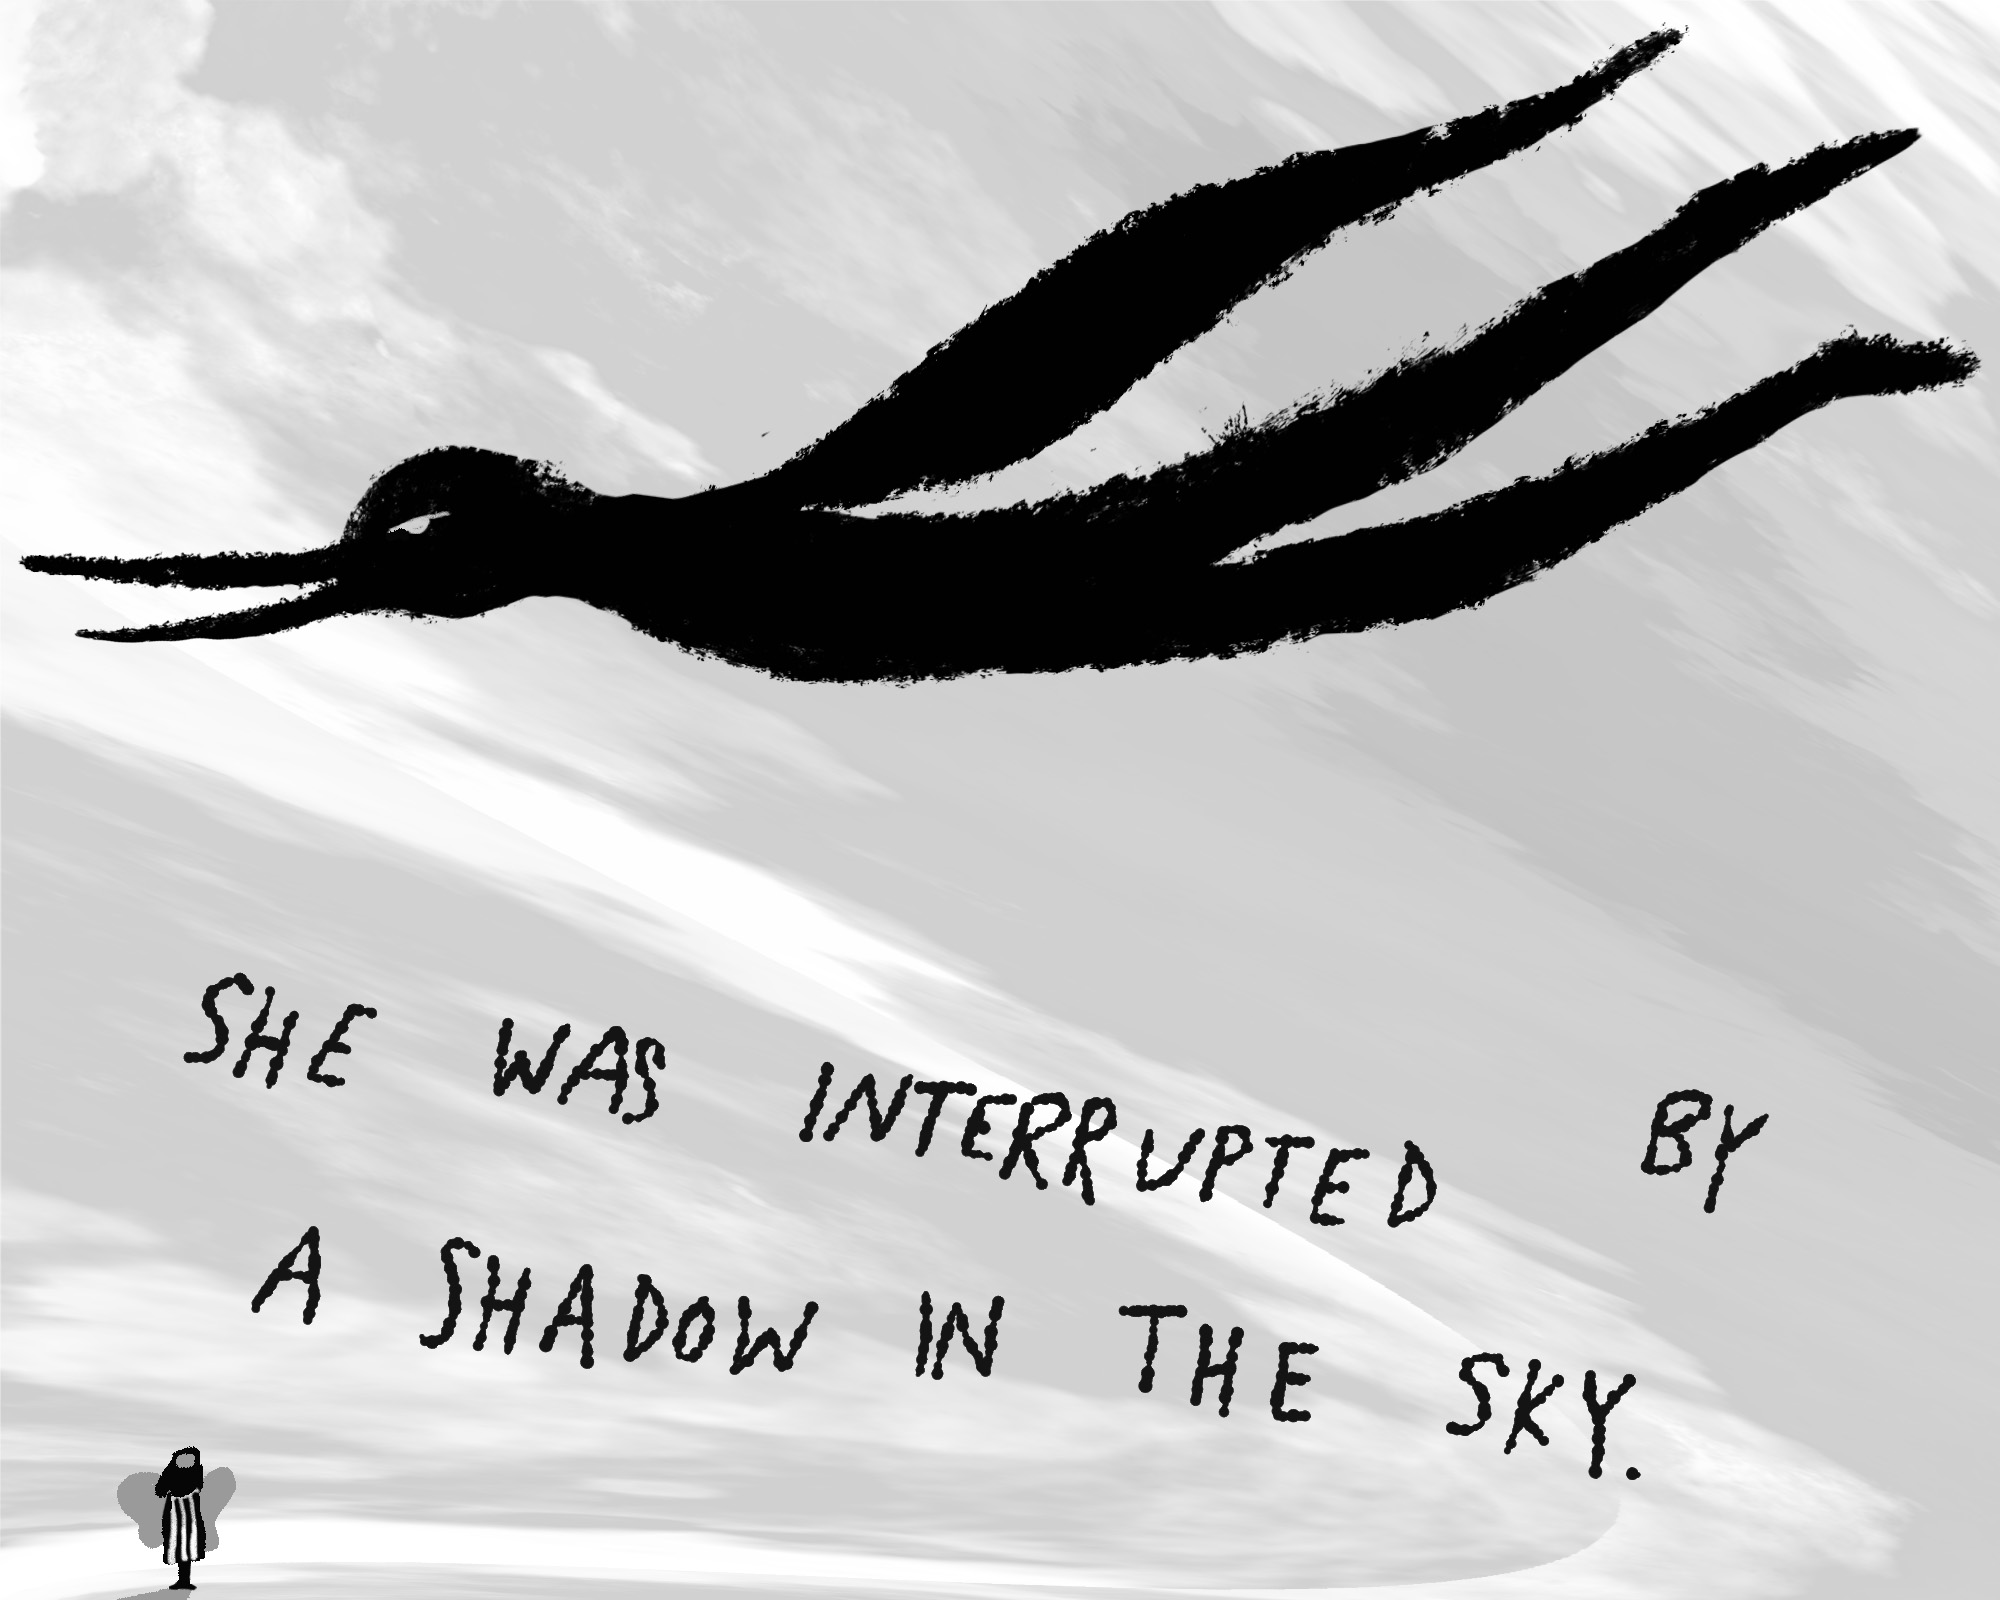 SHE WAS INTERRUPTED BY
A SHADOW IN THE SKY.